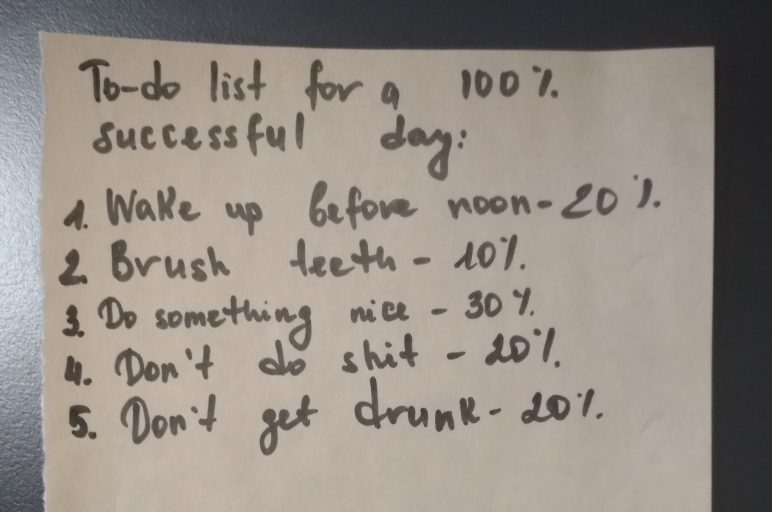 To-do list for a 100%
successful day:
1. Wake up before noon - 20%.
2. Brush teeth - 10%.
3. Do something nice - 30%.
4. Don't do shit - 20%.
5. Don't get drunk - 20%.